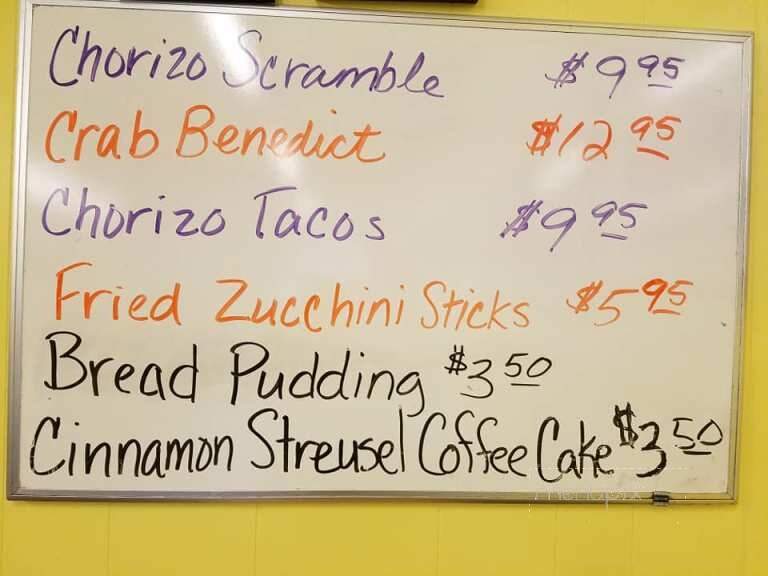 Chorizo Scramble $9 95
Crab Benedict $12 95
Chorizo Tacos $9 95
Fried Zucchini Sticks $5 95
Bread Pudding $3 50
Cinnamon Streusel Coffee Cake $3 50